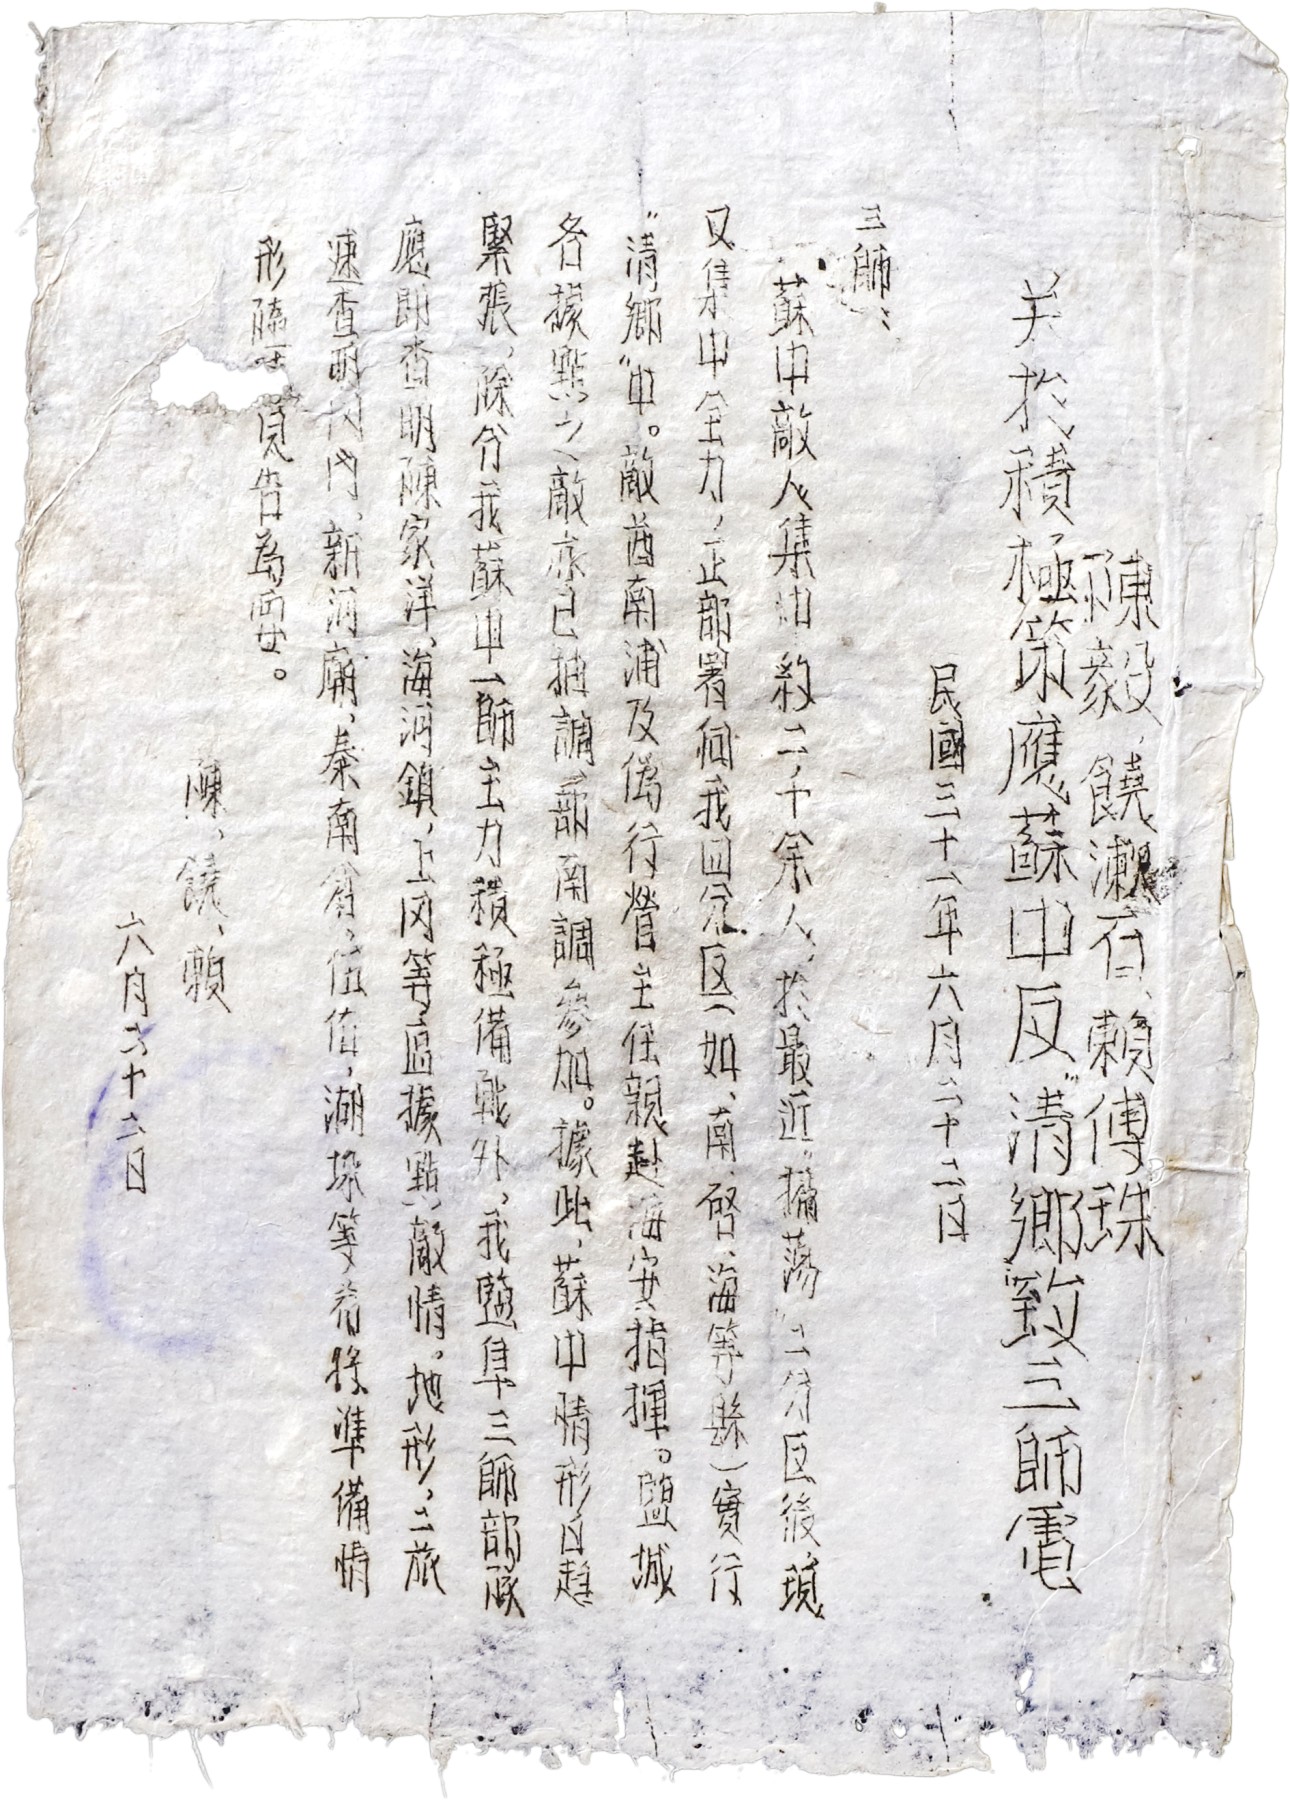 陳毅、饒漱石、賴傅珠
关於積極策應蘇中反“清鄉”致三師電
民國三十一年六月二十二日
三師：
蘇中敵人集中約二千余人，於最近“掃蕩”二分区後，現
又集中全力，正部署向我四分区（如、南、啓、海等縣）實行
“清鄉”中。敵酋南浦及偽行營主任親赴海安指揮。鹽城
各據點之敵亦已抽調一部南調參加。據此，蘇中情形日趋
緊張，除分我蘇中一師主力積極備戰外，我鹽阜三師部隊
應即查明陳家洋、海河鎮，上冈等區據點敵情，地形，二旅
速查明冈門、新河廟，秦南倉，伍佑，湖垛等着將準備情
形隨 見告為要。
陳、饒、賴
六月二十二日